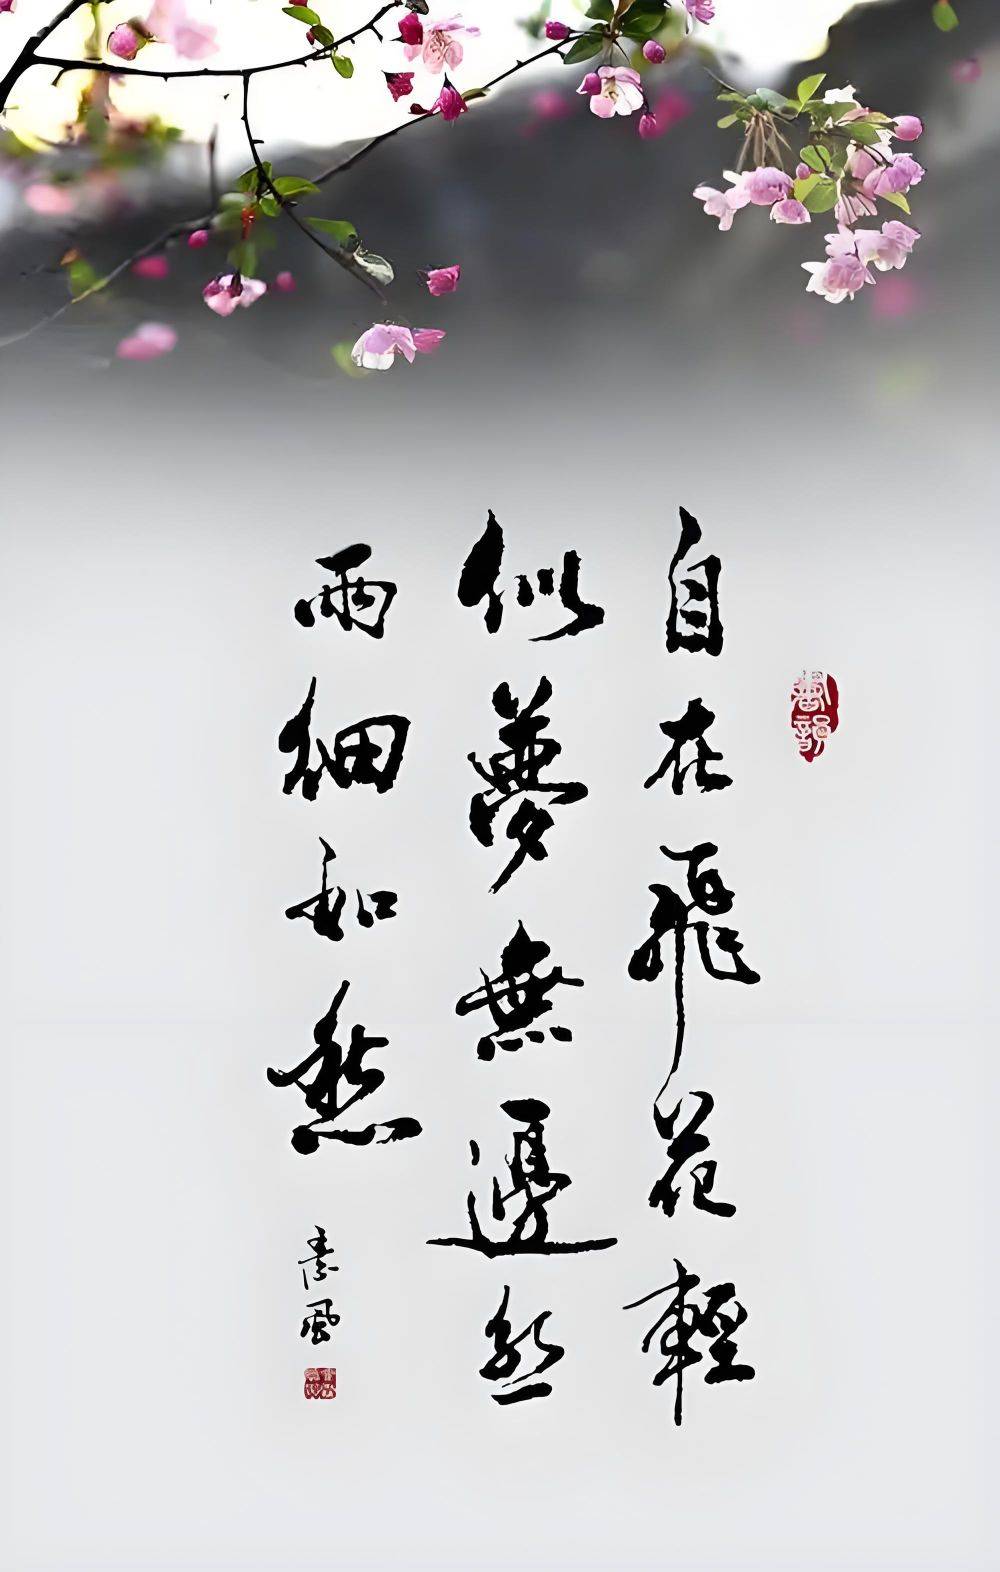 自在飛花輕
似夢無邊丝
雨細如愁
素風